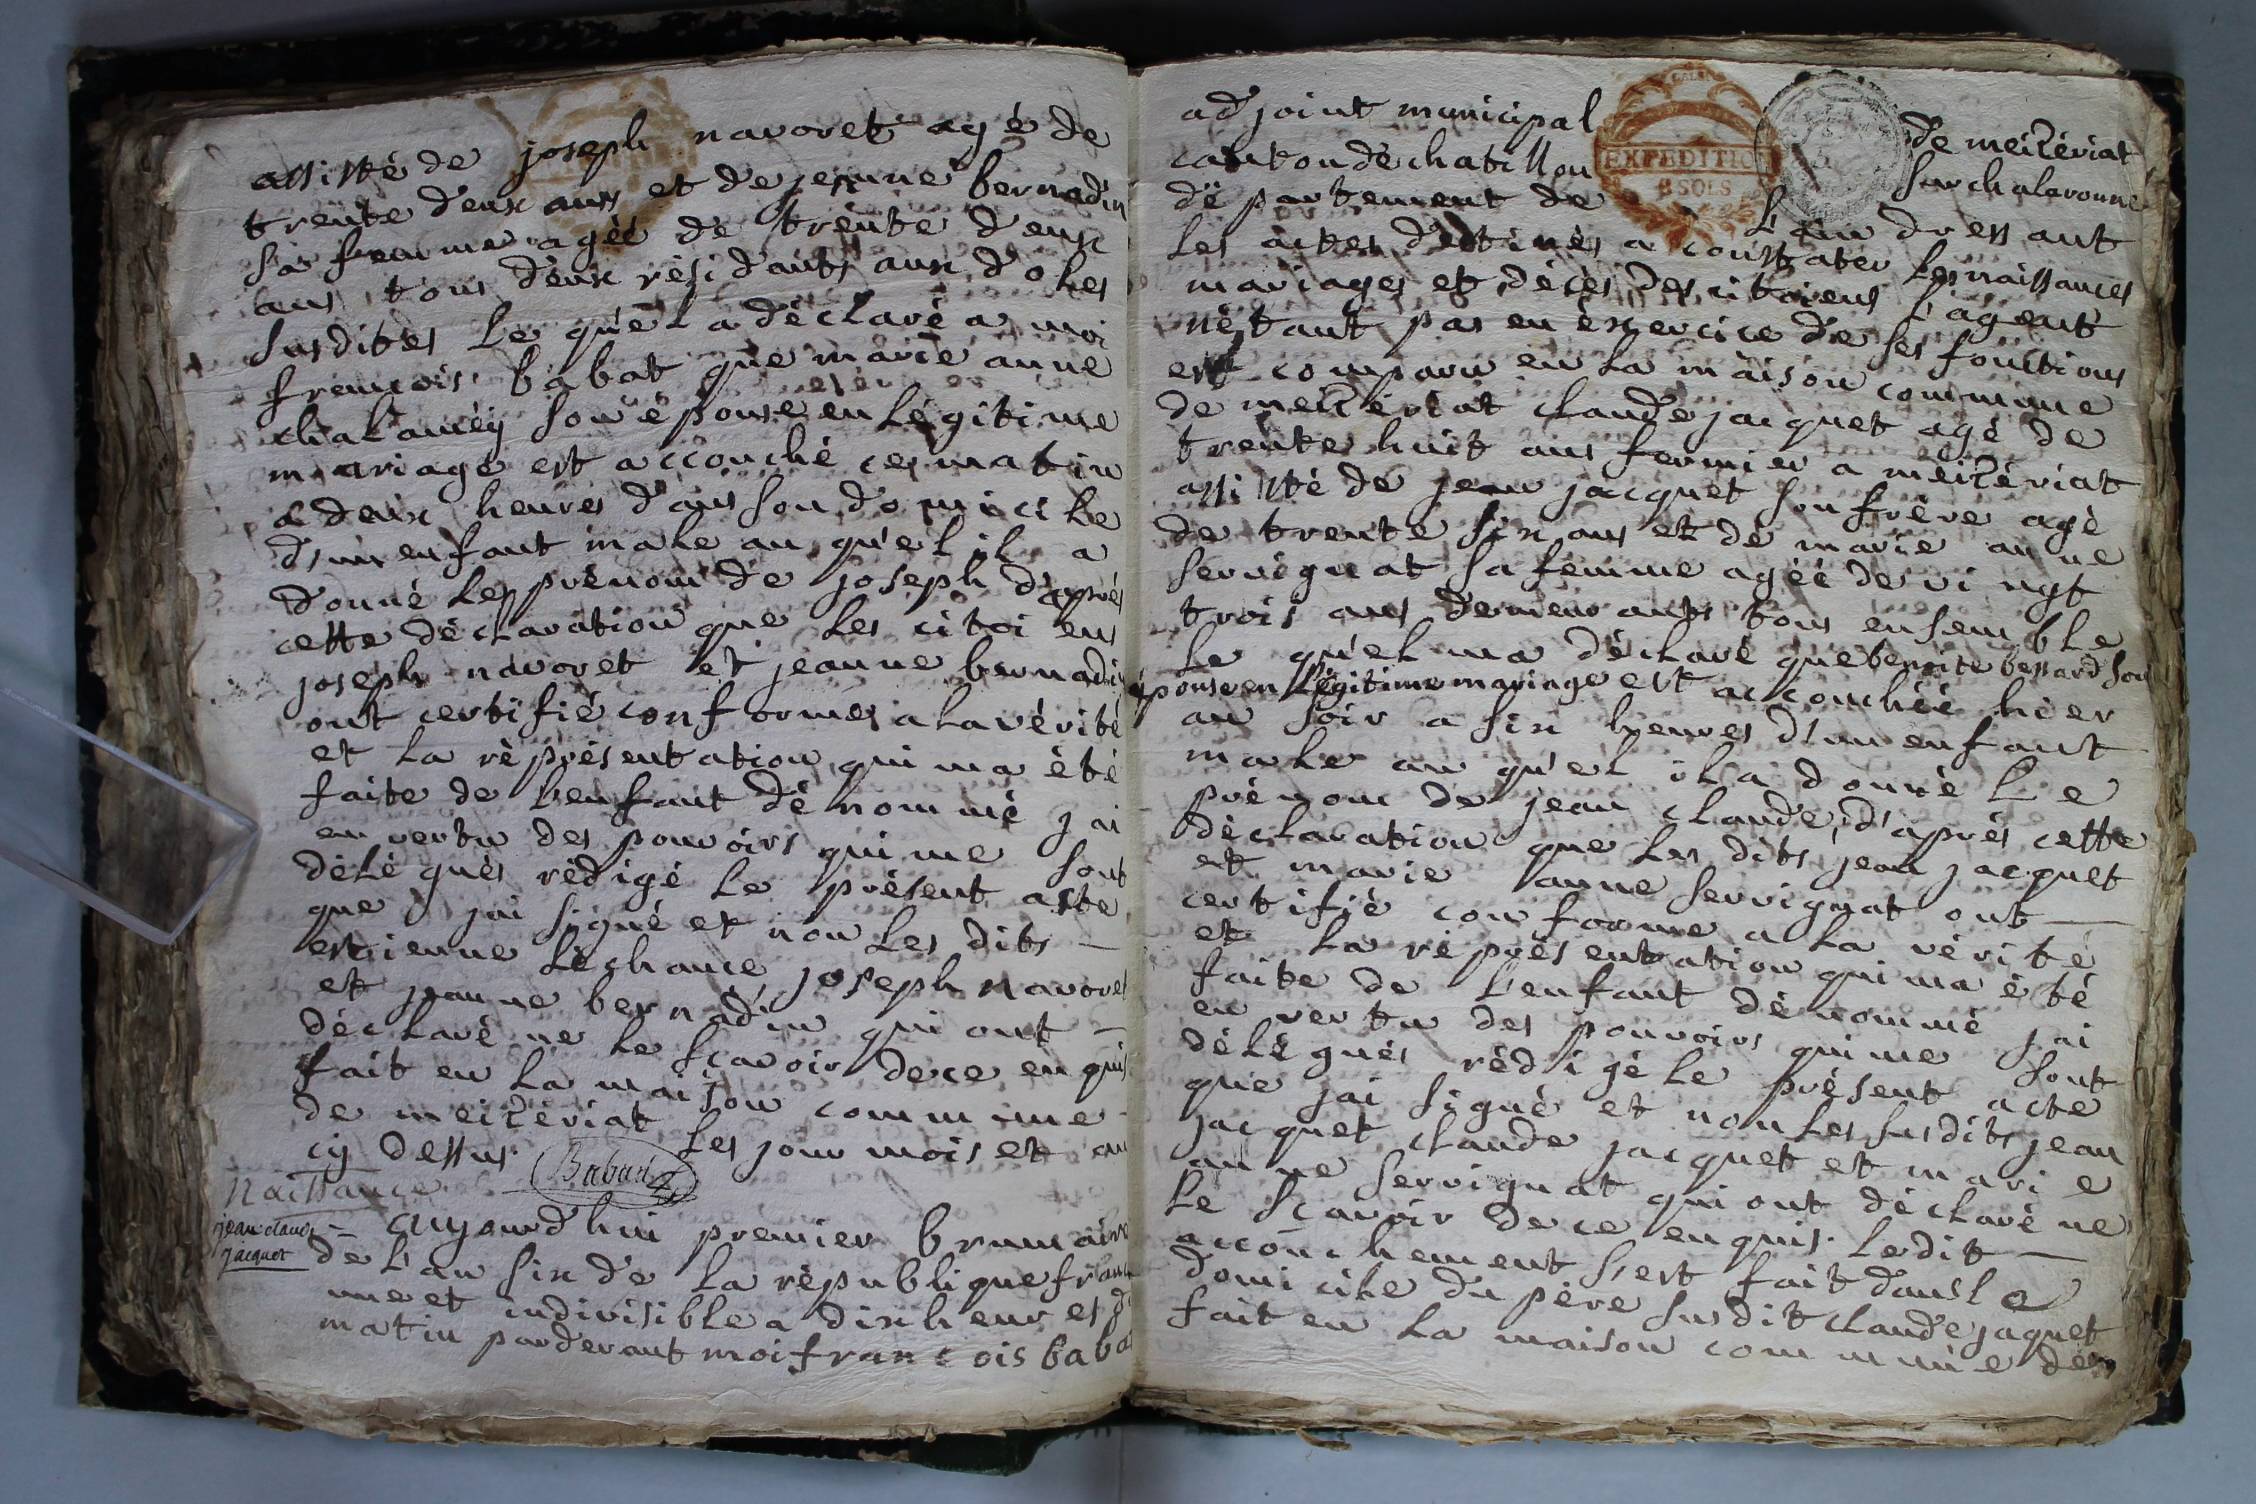 assisté de joseph navoret agé de
trente deux ans et de jeanne bernadin
sa femme agéé de trente deux
ans tous deux résidants aux d'oles
susdites le quel a déclaré a moi
francois babat que marie anne
chalancéy son épouse en légitime
mariage est accouché ce matin
a deux heures dans son domicile
d'un enfant male au quel il a
donné le prénom de joseph d'après
cette déclaration que les citoiens
joseph navoret et jeanne bernadin
ont certifié conformes a la vérité
et la représentation qui ma été
faite de l'enfant dénommé jai
en vertu des pouvoirs qui me sont
délégués rédigé le présent acte
que jai signé et non les dits
estienne léchance joseph navoret
et jeanne bernadin qui ont
déclaré ne le sçavoir de ce enquis
fait en la maison commune
de meizériat les jour mois et an
cy dessus. Babad
naissance
jean claude
jacquet
aujourd'hui premier brumaire
de l'an six de la république fran
une et indivisible a dix heures d
matin par devant moi francois baba
adjoint municipal de meizériat
canton de chatillon sur chalaronne
département de L'ain dressant
les actes destinés a constater les naissances
mariages et décès des citoiens l'agent
nétant pas en èxercice de ses fonctions
est comparu en la maison commune
de meizériat claude jacquet agé de
trente huit ans fermier a meizériat
assisté de jean jacquet son frère agé
de trente six ans et de marie anne
servignat sa femme agéé de vingt
trois ans demeurants tous ensemble
le quel ma déclaré que benoite bessard son
épouse en légitime mariage est accouchéé hier
au soir a six heures d'un enfant
male au quel il a donné le
prénom de jean claude, d'après cette
déclaration que les dits jean jacquet
et marie anne servignat ont
certifié conforme a la vérité
et la représentation qui ma été
faite de l'enfant dénommé jai
en vertu des pouvoirs qui me sont
délégués rédigé le présent acte
que jai signé et non les susdits jean
jacquet claude jacquet et marie
anne servignat qui ont déclaré ne
le sçavoir de ce enquis. ledit
accouchement s'est fait dans le
domicile du père susdit claude jaquet
fait en la maison commune de m
EXPEDITIO
8 SOLS